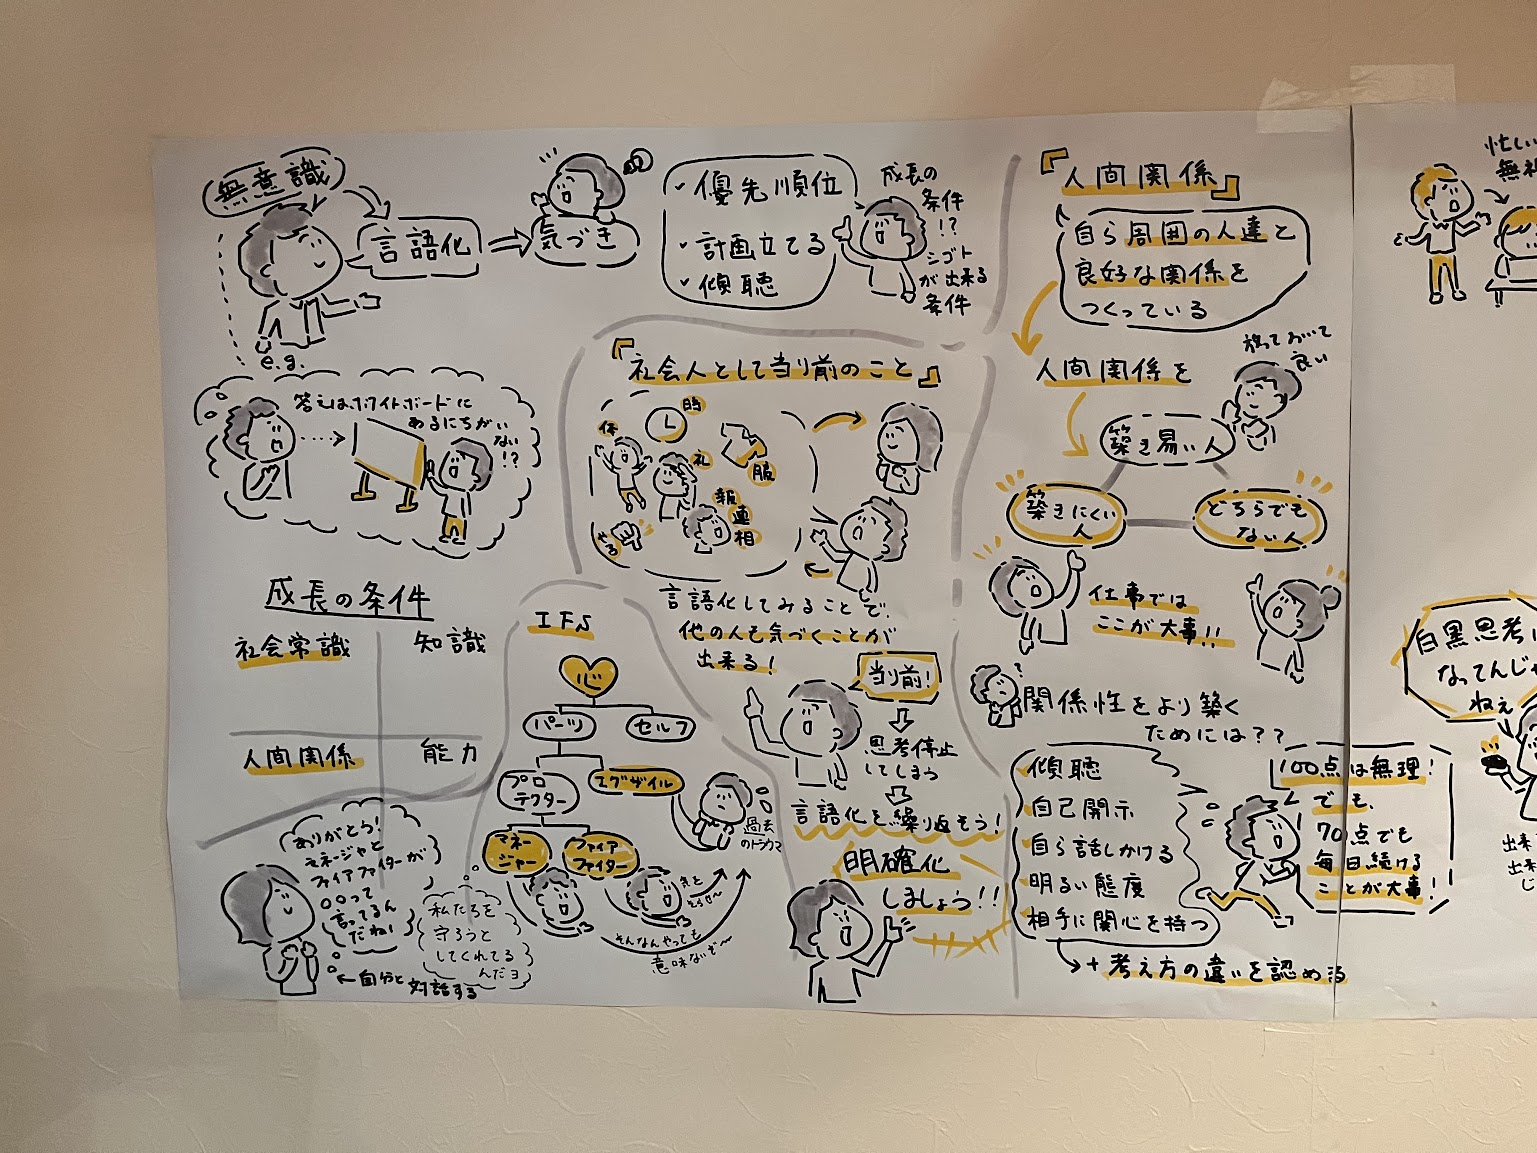 無意識
言語化
気づき
e.g.
答えはホワイトボードに
あるにちがい
ない!?
・優先順位
・計画立てる
・傾聴
成長の
条件
!?
シゴト
が出来る
条件
『社会人として当り前のこと』
時
休
礼
服
報
連
相
言語化してみることで、
他の人も気づくことが
出来る!
当り前!
思考停止
してしまう
言語化を繰り返そう!
明確化
しましょう!!
成長の条件
社会常識
知識
人間関係
能力
IFS
心
パーツ
セルフ
プロ
テクター
エグザイル
マネー
ジャー
ファイア
ファイター
過去
のトラウマ
気を
そんなんやっても
意味ないぞ〜
ありがとう!
マネージャと
ファイアファイターが
○○って
言ってるん
だね!
私たちを
守ろうと
してくれてる
んだヨ
←自分と対話する
『人間関係』
自ら周囲の人達と
良好な関係を
つくっている
人間関係を
放っておいて
良い
築き易い人
築きにくい
人
どちらでも
ない人
仕事では
ここが大事!!
?
関係性をより築く
ためには??
傾聴
自己開示
自ら話しかける
明るい態度
相手に関心を持つ
+考え方の違いを認める
100点は無理!
でも、
70点でも
毎日続ける
ことが大事!
忙しい
無
白黒思考に
なってんじゃ
ねぇ
出来
出来
じ